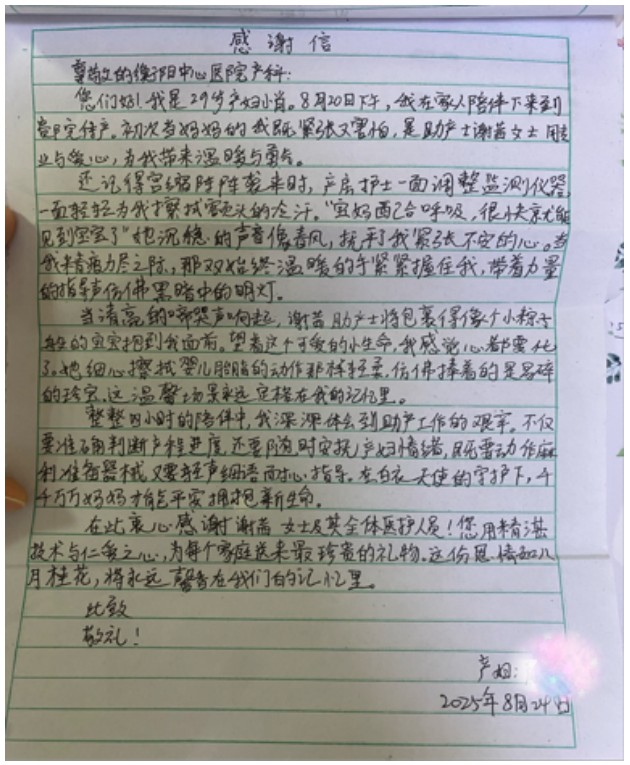 感谢信
尊敬的衡阳中心医院产科:
您们好!我是29岁产妇小肖。8月20日下午,我在家人陪伴下来到
贵院待产。初次当妈妈的我既紧张又害怕,是助产士谢茜女士用专
业与爱心,为我带来温暖与勇气。
还记得宫缩阵阵袭来时,产房护士一面调整监测仪器,
一面轻轻为我擦拭额头的冷汗。"宝妈配合呼吸,很快就能
见到宝宝了"她沉稳的声音像春风,抚平了我紧张不安的心。当
我精疲力尽之际,那双始终温暖的手紧紧握住我,带着力量
的指导声仿佛黑暗中的明灯。
当清亮的啼哭声响起,谢茜助产士将包裹得像个小粽子
般的宝宝抱到我面前。望着这个可爱的小生命,我感觉心都要化
了。她细心擦拭婴儿胎脂的动作那样轻柔,仿佛捧着的是易碎
的珍宝,这温馨场景永远定格在我的记忆里。
整整 小时的陪伴中,我深深体会到助产工作的艰辛。不仅
要准确判断产程进度,还要随时安抚产妇情绪,既要动作麻
利准备器械又要轻声细语耐心指导。在白衣天使的守护下,千
千万万妈妈才能平安拥抱新生命。
在此衷心感谢谢茜女士及其全体医护人员!您用精湛
技术与仁爱之心,为每个家庭送来最珍贵的礼物。这份恩情如八
月桂花,将永远馨香在我们的记忆里。
此致
敬礼!
产妇:
2025年8月24日